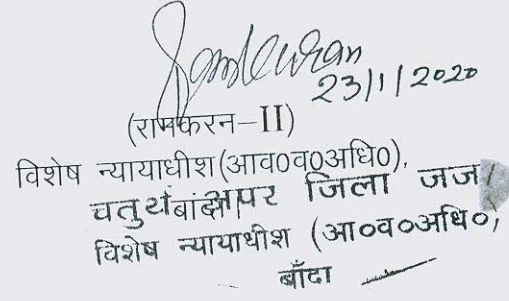 Ramkaran
23/1/2020
(रामकरन–II)
विशेष न्यायाधीश(आव0व0अधि0),
बांदा।
चतुर्थ अपर जिला जज/
विशेष न्यायाधीश (आ०व०अधि०)
बाँदा